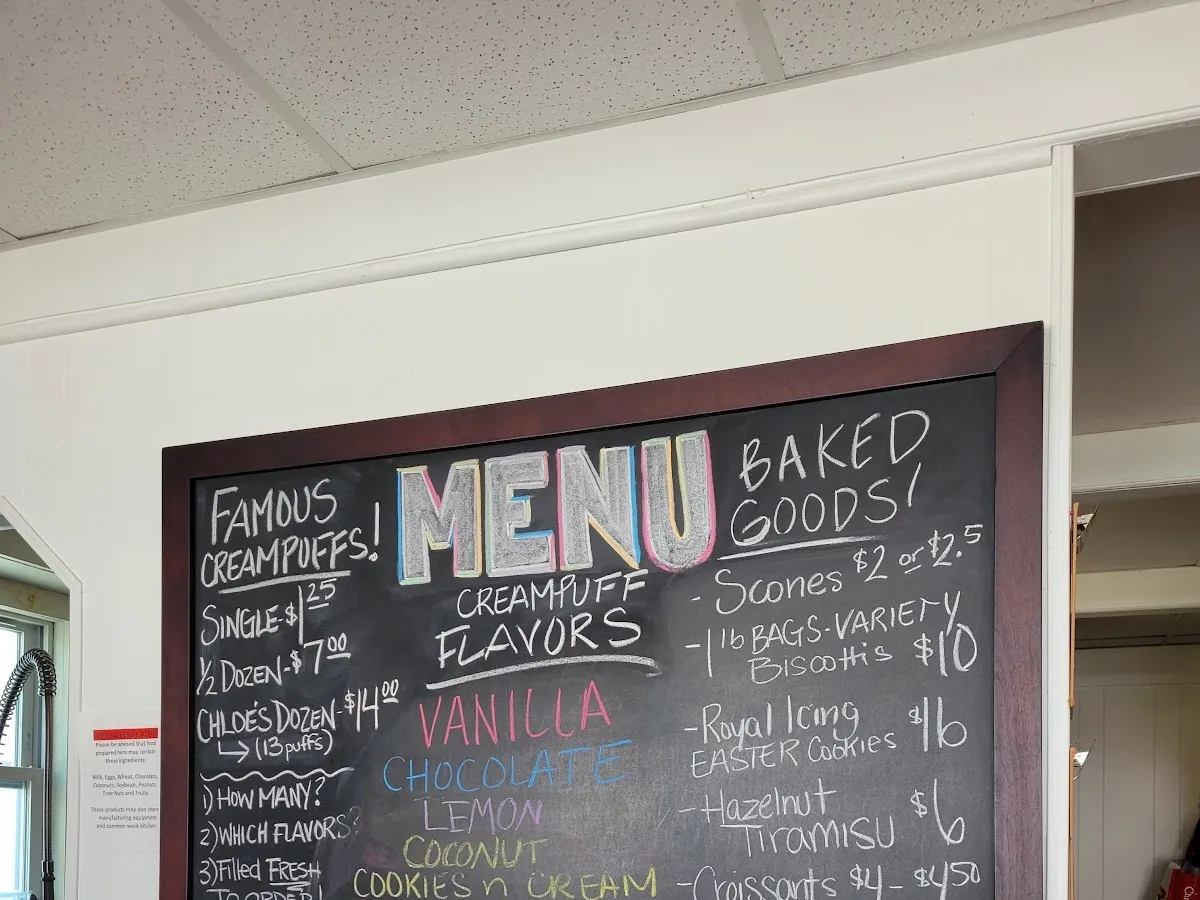 FAMOUS
CREAMPUFFS!
SINGLE-$1.25
1/2 DOZEN-$7.00
CHLOE'S DOZEN-$14.00
(13 puffs)
1) HOW MANY?
2) WHICH FLAVORS?
3) Filled FRESH
TO ORDER!
MENU
CREAMPUFF
FLAVORS
VANILLA
CHOCOLATE
LEMON
COCONUT
COOKIES n CREAM
BAKED
GOODS!
- Scones $2 or $2.5
- 1 lb BAGS-VARIETY
Biscottis $10
- Royal Icing
EASTER Cookies $16
- Hazelnut
TIRAMISU $6
- Croissants $4 - $4.50
Please be advised that food
prepared here may contain
these ingredients:
Milk, Eggs, Wheat, Chocolate,
Coconuts, Soybean, Peanuts,
Tree Nuts and Fruits
These products may also share
manufacturing equipment
and common work kitchen.